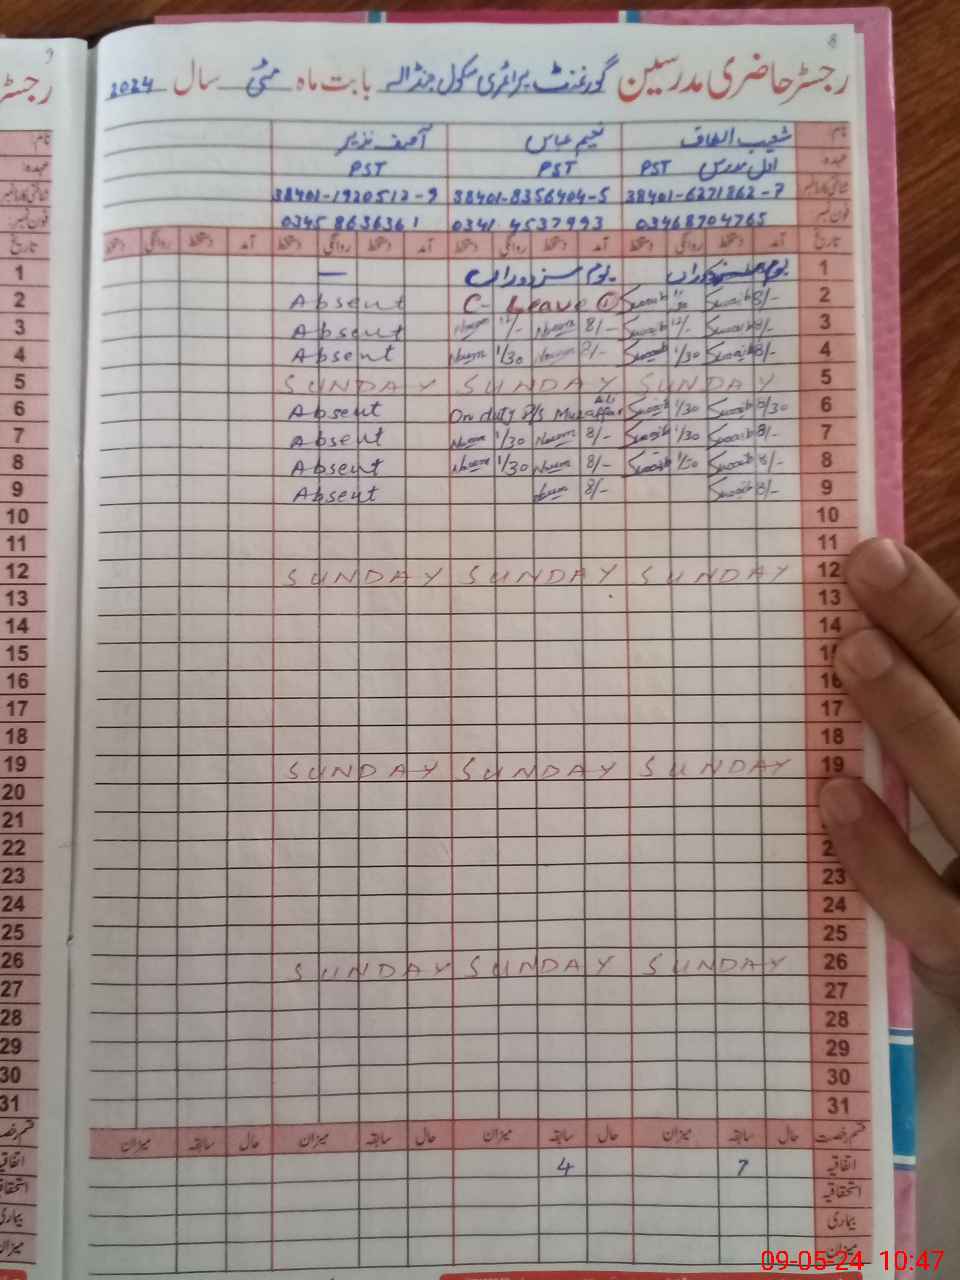 8
رجسٹر حاضری مدرسین گورنمنٹ پرائمری سکول جنڈالہ بابت ماہ مئی سال 2024
نام: شعیب الطاف نعیم عباس آصف نزیر
عہدہ: اول مدرس PST PST PST
شناختی کارڈ نمبر 38401-6271862-7 38401-8356404-5 38401-1920512-9
فون نمبر 03468704765 0341 4537993 0345 8636361
تاریخ آمد دستخط روانگی دستخط آمد دستخط روانگی دستخط آمد دستخط روانگی دستخط آمد دستخط روانگی دستخط
1 یوم مزدوراں یوم مزدوراں —
2 8/- Shoaib Shoaib C- Leave ① Absent
3 8/- Shoaib 12/- Shoaib 8/- Naeem 12/- Naeem Absent
4 8/- Shoaib 1/30 Shoaib 8/- Naeem 1/30 Naeem Absent
5 SUNDAY SUNDAY SUNDAY
6 8/30 Shoaib 1/30 Shoaib On duty P/S Muzaffar Ali Absent
7 8/- Shoaib 1/30 Shoaib 8/- Naeem 1/30 Naeem Absent
8 8/- Shoaib 1/30 Shoaib 8/- Naeem 1/30 Naeem Absent
9 8/- Shoaib 8/- Naeem Absent
10
11
12 SUNDAY SUNDAY SUNDAY
13
14
15
16
17
18
19 SUNDAY SUNDAY SUNDAY
20
21
22
23
24
25
26 SUNDAY SUNDAY SUNDAY
27
28
29
30
31
قسم رخصت حال سابقہ میزان حال سابقہ میزان حال سابقہ میزان حال سابقہ میزان
اتفاقیہ 7 4
استحقاقیہ
بیماری
میزان
09-05-24 10:47